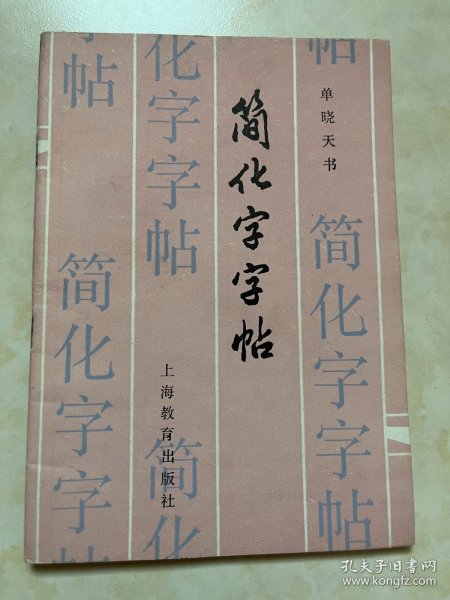 单晓天书
简化字字帖
上海教育出版社
帖
简化字字帖
化字字帖
简化
帖
简化字字
孔夫子旧书网
www.kongfz.com